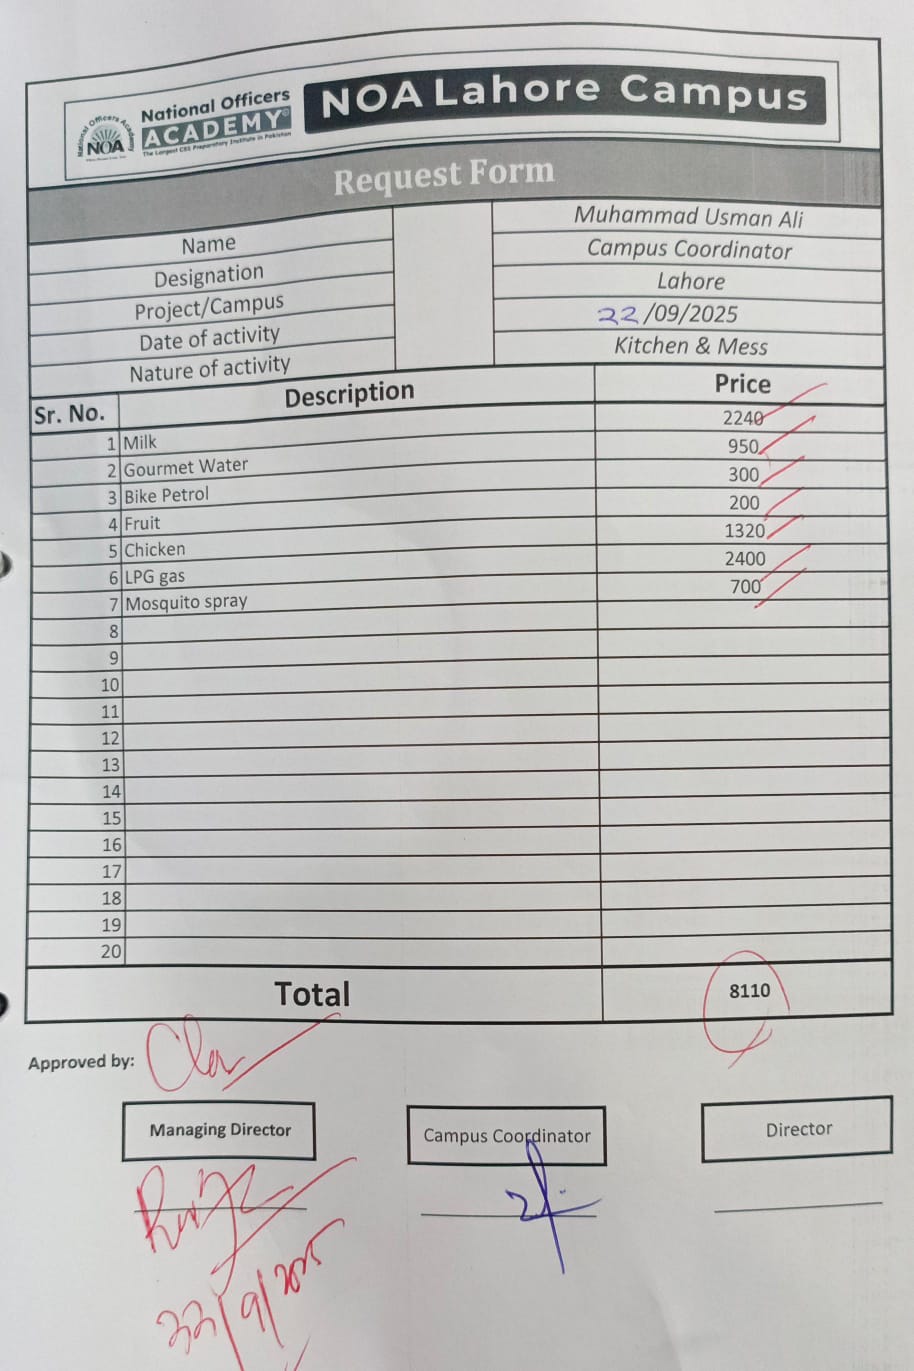 National Officers
ACADEMY
The Largest CSS Preparatory Institute in Pakistan
National Officers Academy
NOA
NOA Lahore Campus
Request Form
Name Muhammad Usman Ali
Designation Campus Coordinator
Project/Campus Lahore
Date of activity 22/09/2025
Nature of activity Kitchen & Mess
Sr. No. Description Price
1 Milk 2240
2 Gourmet Water 950
3 Bike Petrol 300
4 Fruit 200
5 Chicken 1320
6 LPG gas 2400
7 Mosquito spray 700
8
9
10
11
12
13
14
15
16
17
18
19
20
Total 8110
Approved by:
Managing Director Campus Coordinator Director
22/9/2025